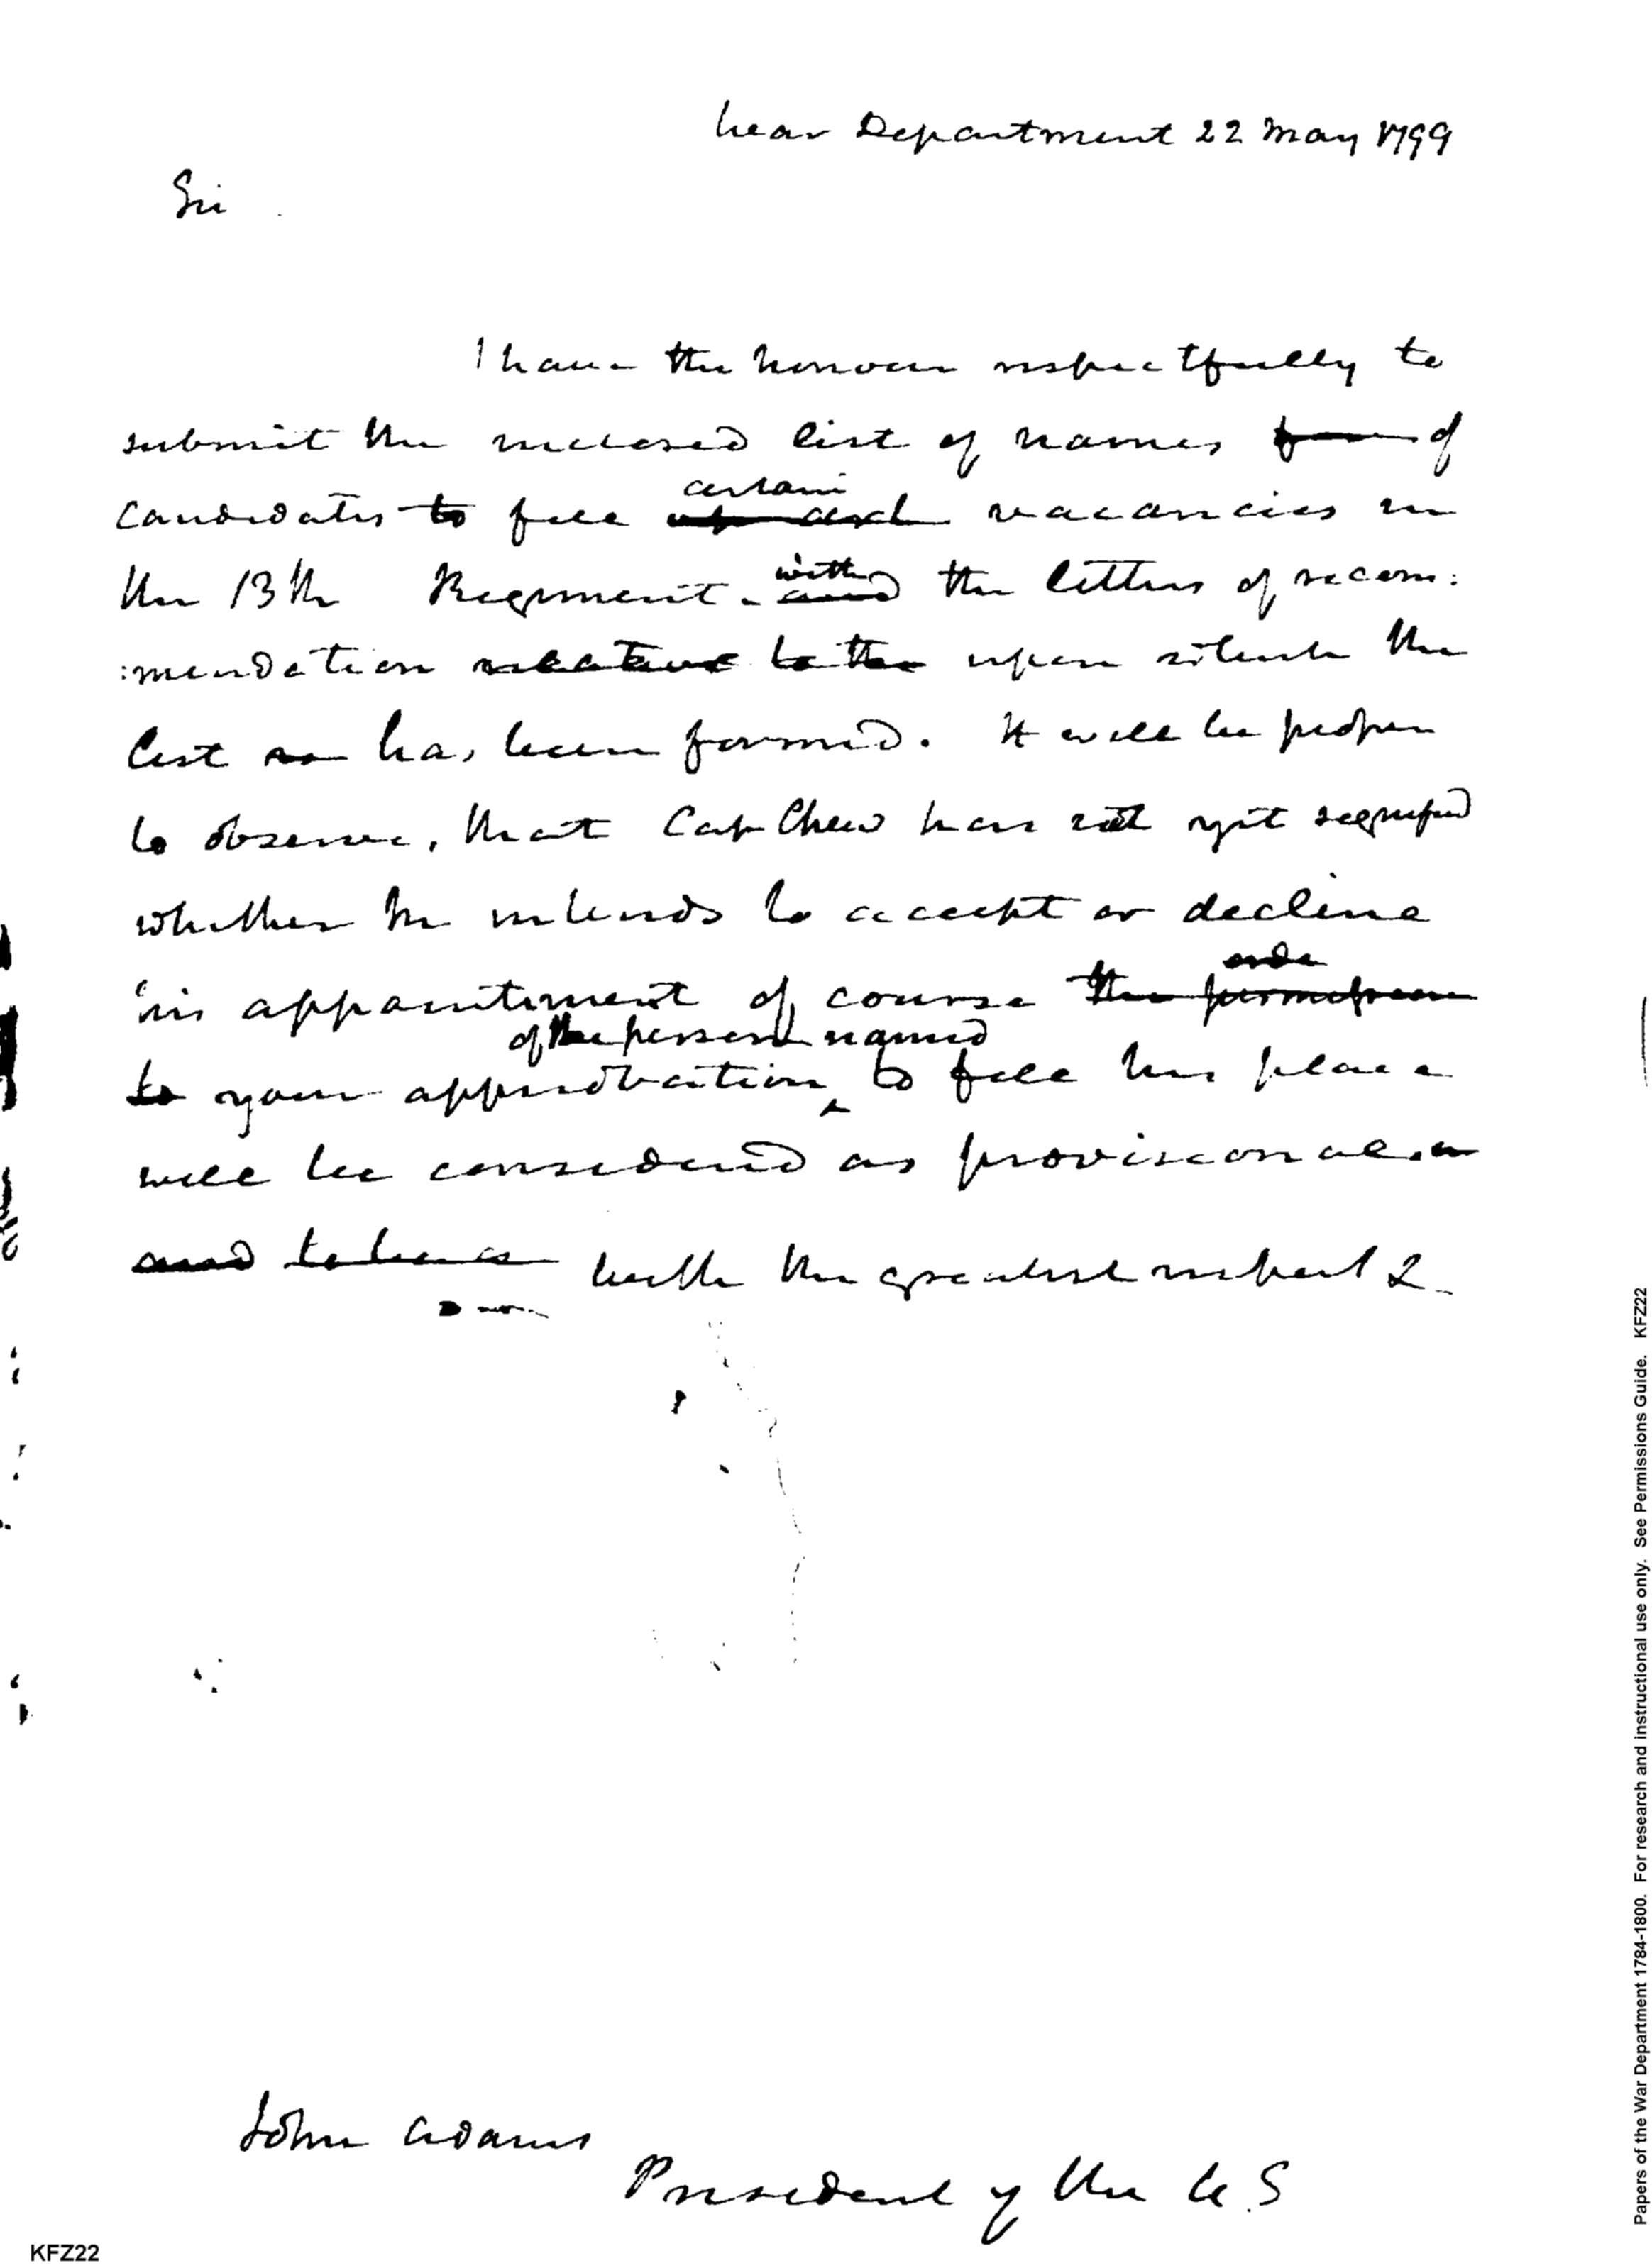 War Department 22 May 1799
Sir
I have the honour respectfully to
submit the inclosed list of names of
candidates to fill certain vacancies in
the 13th Regiment. with the letters of recom:
:mendation relative to the upon which the
list has been formed. It will be proper
to observe, that Cap Chew has not yet signified
whether he intends to accept or decline
his appointment of course the
of the person named
to your approbation to fill his place
will be considered as provisional.
and to be as with the greatest respect &
John Adams
President of the U.S
KFZ22
Papers of the War Department 1784-1800. For research and instructional use only. See Permissions Guide. KFZ22